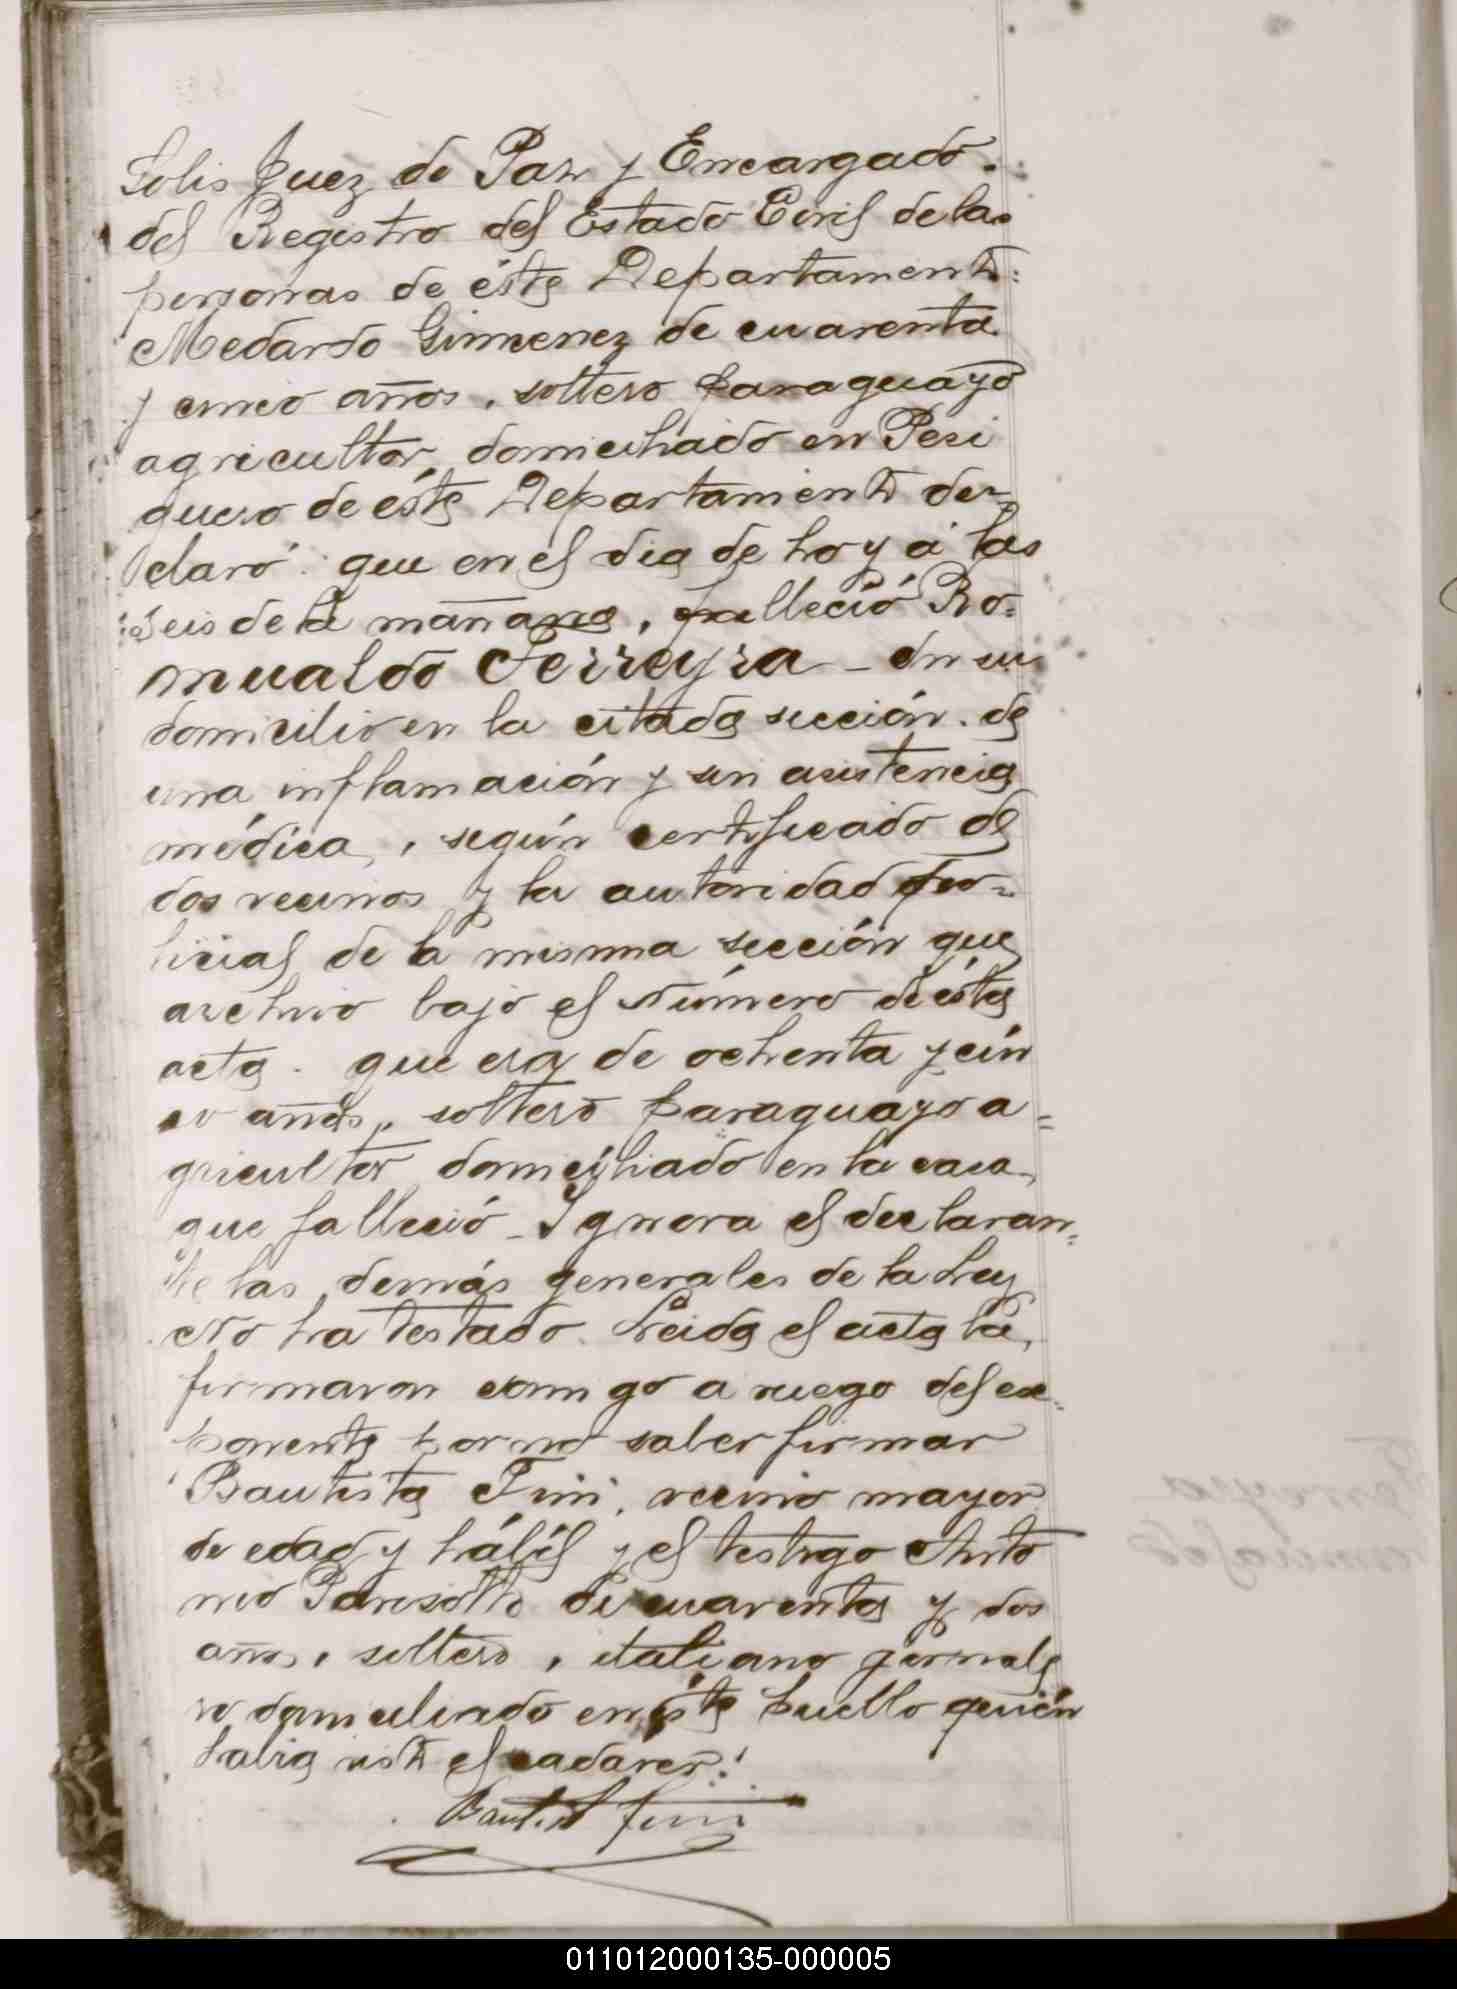 Solis Juez de Paz y Encargado
del Registro del Estado Civil de las
personas de éste Departamento:
Medardo Gimenez de cuarenta
y cinco años, soltero paraguayo
agricultor, domiciliado en Pesi
guero de éste Departamento de-
claró: que en el dia de hoy á las
seis de la mañana, falleció Ro-
mualdo Ferreyra - en su
domicilio en la citada sección. de
una inflamación y sin asistencia
médica, según certificado de
dos vecinos y la autoridad po-
licial de la misma sección que
archivo bajo el número de ésta
acta. que era de ochenta y cin
co años, soltero paraguayo a-
gricultor domiciliado en la casa
que falleció - Ignora el declaran-
te las demás generales de la Ley
No ha testado. Leida el acta la
firmaron conmigo a ruego del ex-
ponente por no saber firmar
Bautista Fini, vecino mayor
de edad y hábil y el testigo Anto
nio Parisotto de cuarenta y dos
años, soltero, italiano jornale
ro domiciliado en éste pueblo quién
habia visto el cadaver.
Bautista Fini
Ferreyra
Romualdo
011012000135-000005